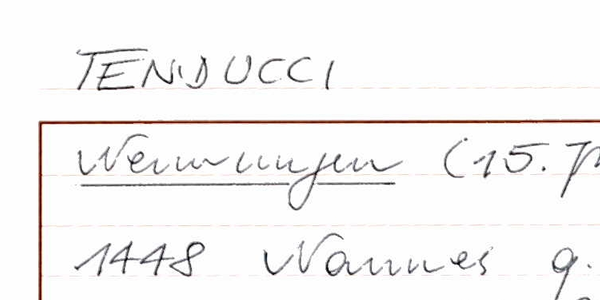 TENDUCCI
Nennungen (15. J
1448 Nannes q.